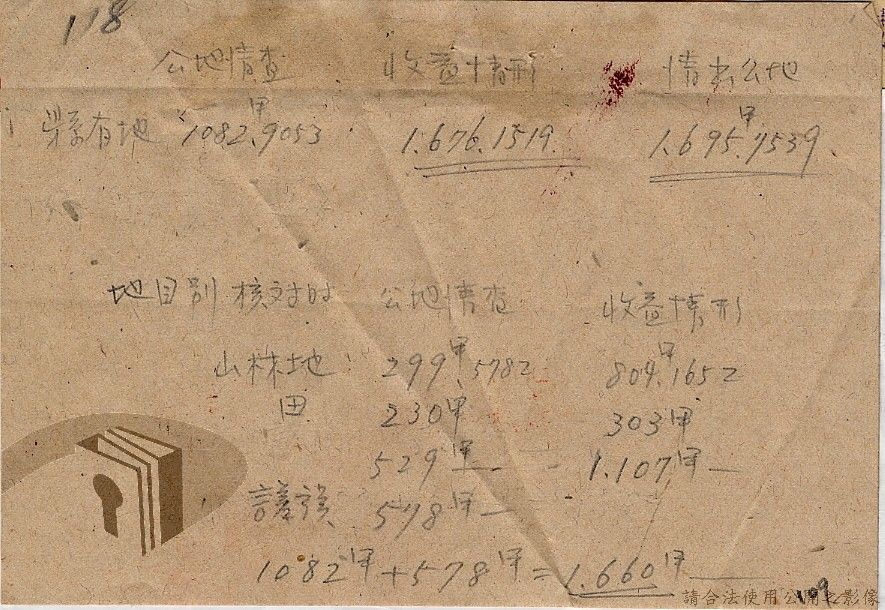 118
公地情查 收益情形 情查公地
縣有地 1082甲.9053 1.676.1519 1.695甲.7539
地目別 核对时 公地情查 收益情形
山林地 299甲.5782 804甲.1652
田 230甲 303甲
529甲— 1.107甲—
差誤 578甲—
1082甲+578甲=1.660甲—
請合法使用公開之影像